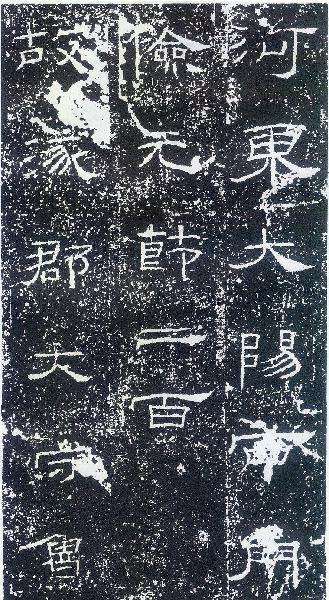 河東大陽西門
儉元節二百
故涿郡大守魯